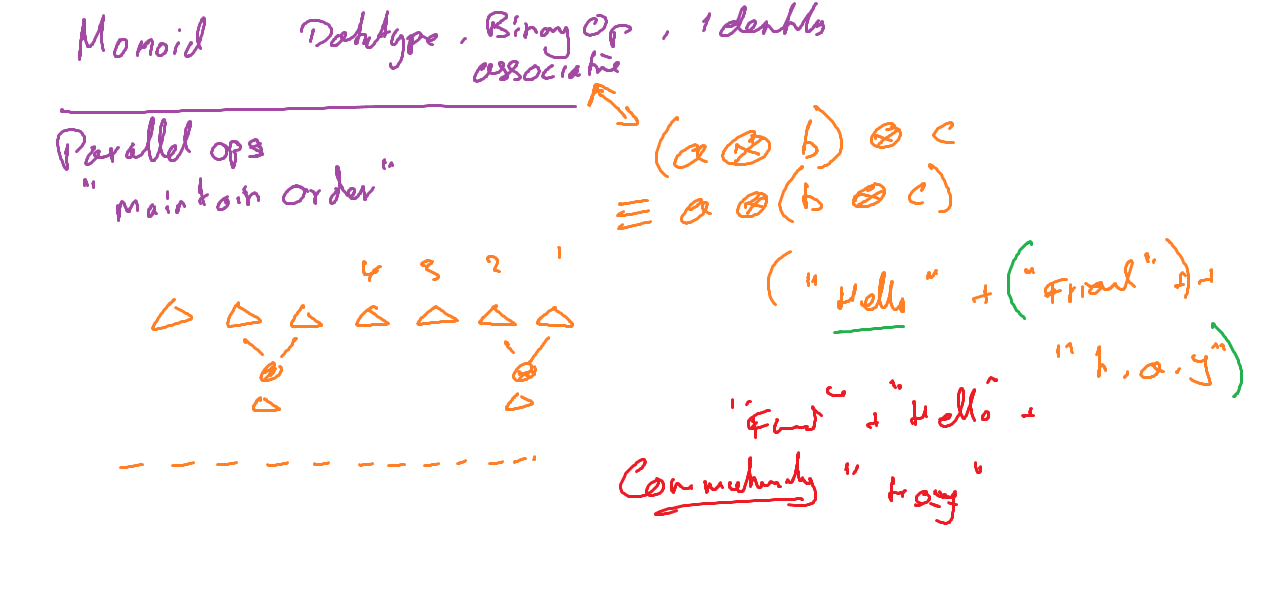 Monoid Datatype, Binary Op, Identity
associative
Parallel ops
"maintain order"
(a ⊗ b) ⊗ c
≡ a ⊗ (b ⊗ c)
4 3 2 1
("Hello" + ("Friend") +
"h.a.y")
+ "Hello" +
Commutativity "Hay"